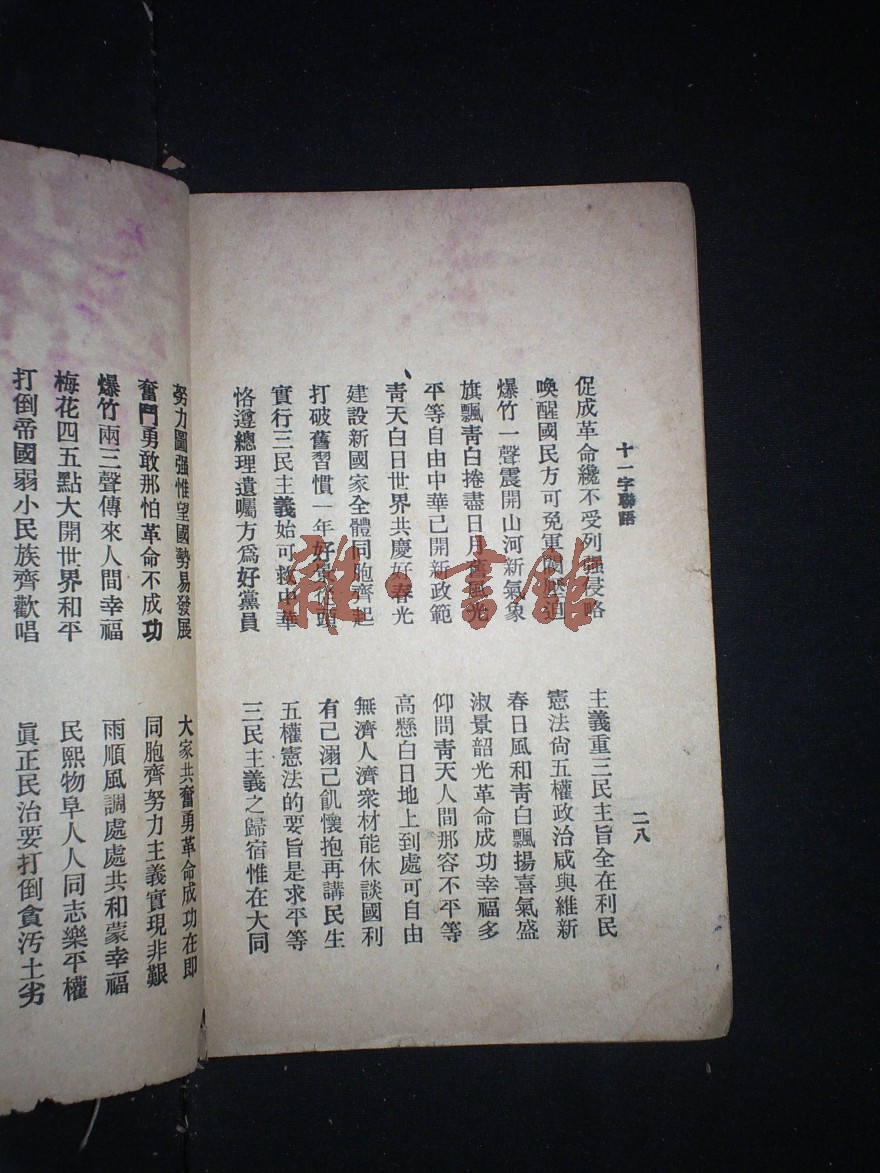 十一字聯語
二八
促成革命纔不受列强侵略
喚醒國民方可免軍閥壓迫
爆竹一聲震開山河新氣象
旗飄靑白捲盡日月舊風光
平等自由中華已開新政範
靑天白日世界共慶好春光
建設新國家全體同胞齊起
打破舊習慣一年好景從頭
實行三民主義始可救中華
恪遵總理遺囑方爲好黨員
主義重三民主旨全在利民
憲法尙五權政治咸與維新
春日風和靑白飄揚喜氣盛
淑景韶光革命成功幸福多
仰問靑天人間那容不平等
高懸白日地上到處可自由
無濟人濟衆材能休談國利
有己溺己飢懷抱再講民生
五權憲法的要旨是求平等
三民主義之歸宿惟在大同
努力圖强惟望國勢易發展
奮鬥勇敢那怕革命不成功
爆竹兩三聲傳來人間幸福
梅花四五點大開世界和平
打倒帝國弱小民族齊歡唱
大家共奮勇革命成功在即
同胞齊努力主義實現非艱
雨順風調處處共和蒙幸福
民熙物阜人人同志樂平權
眞正民治要打倒貪汚土劣
雜·書館